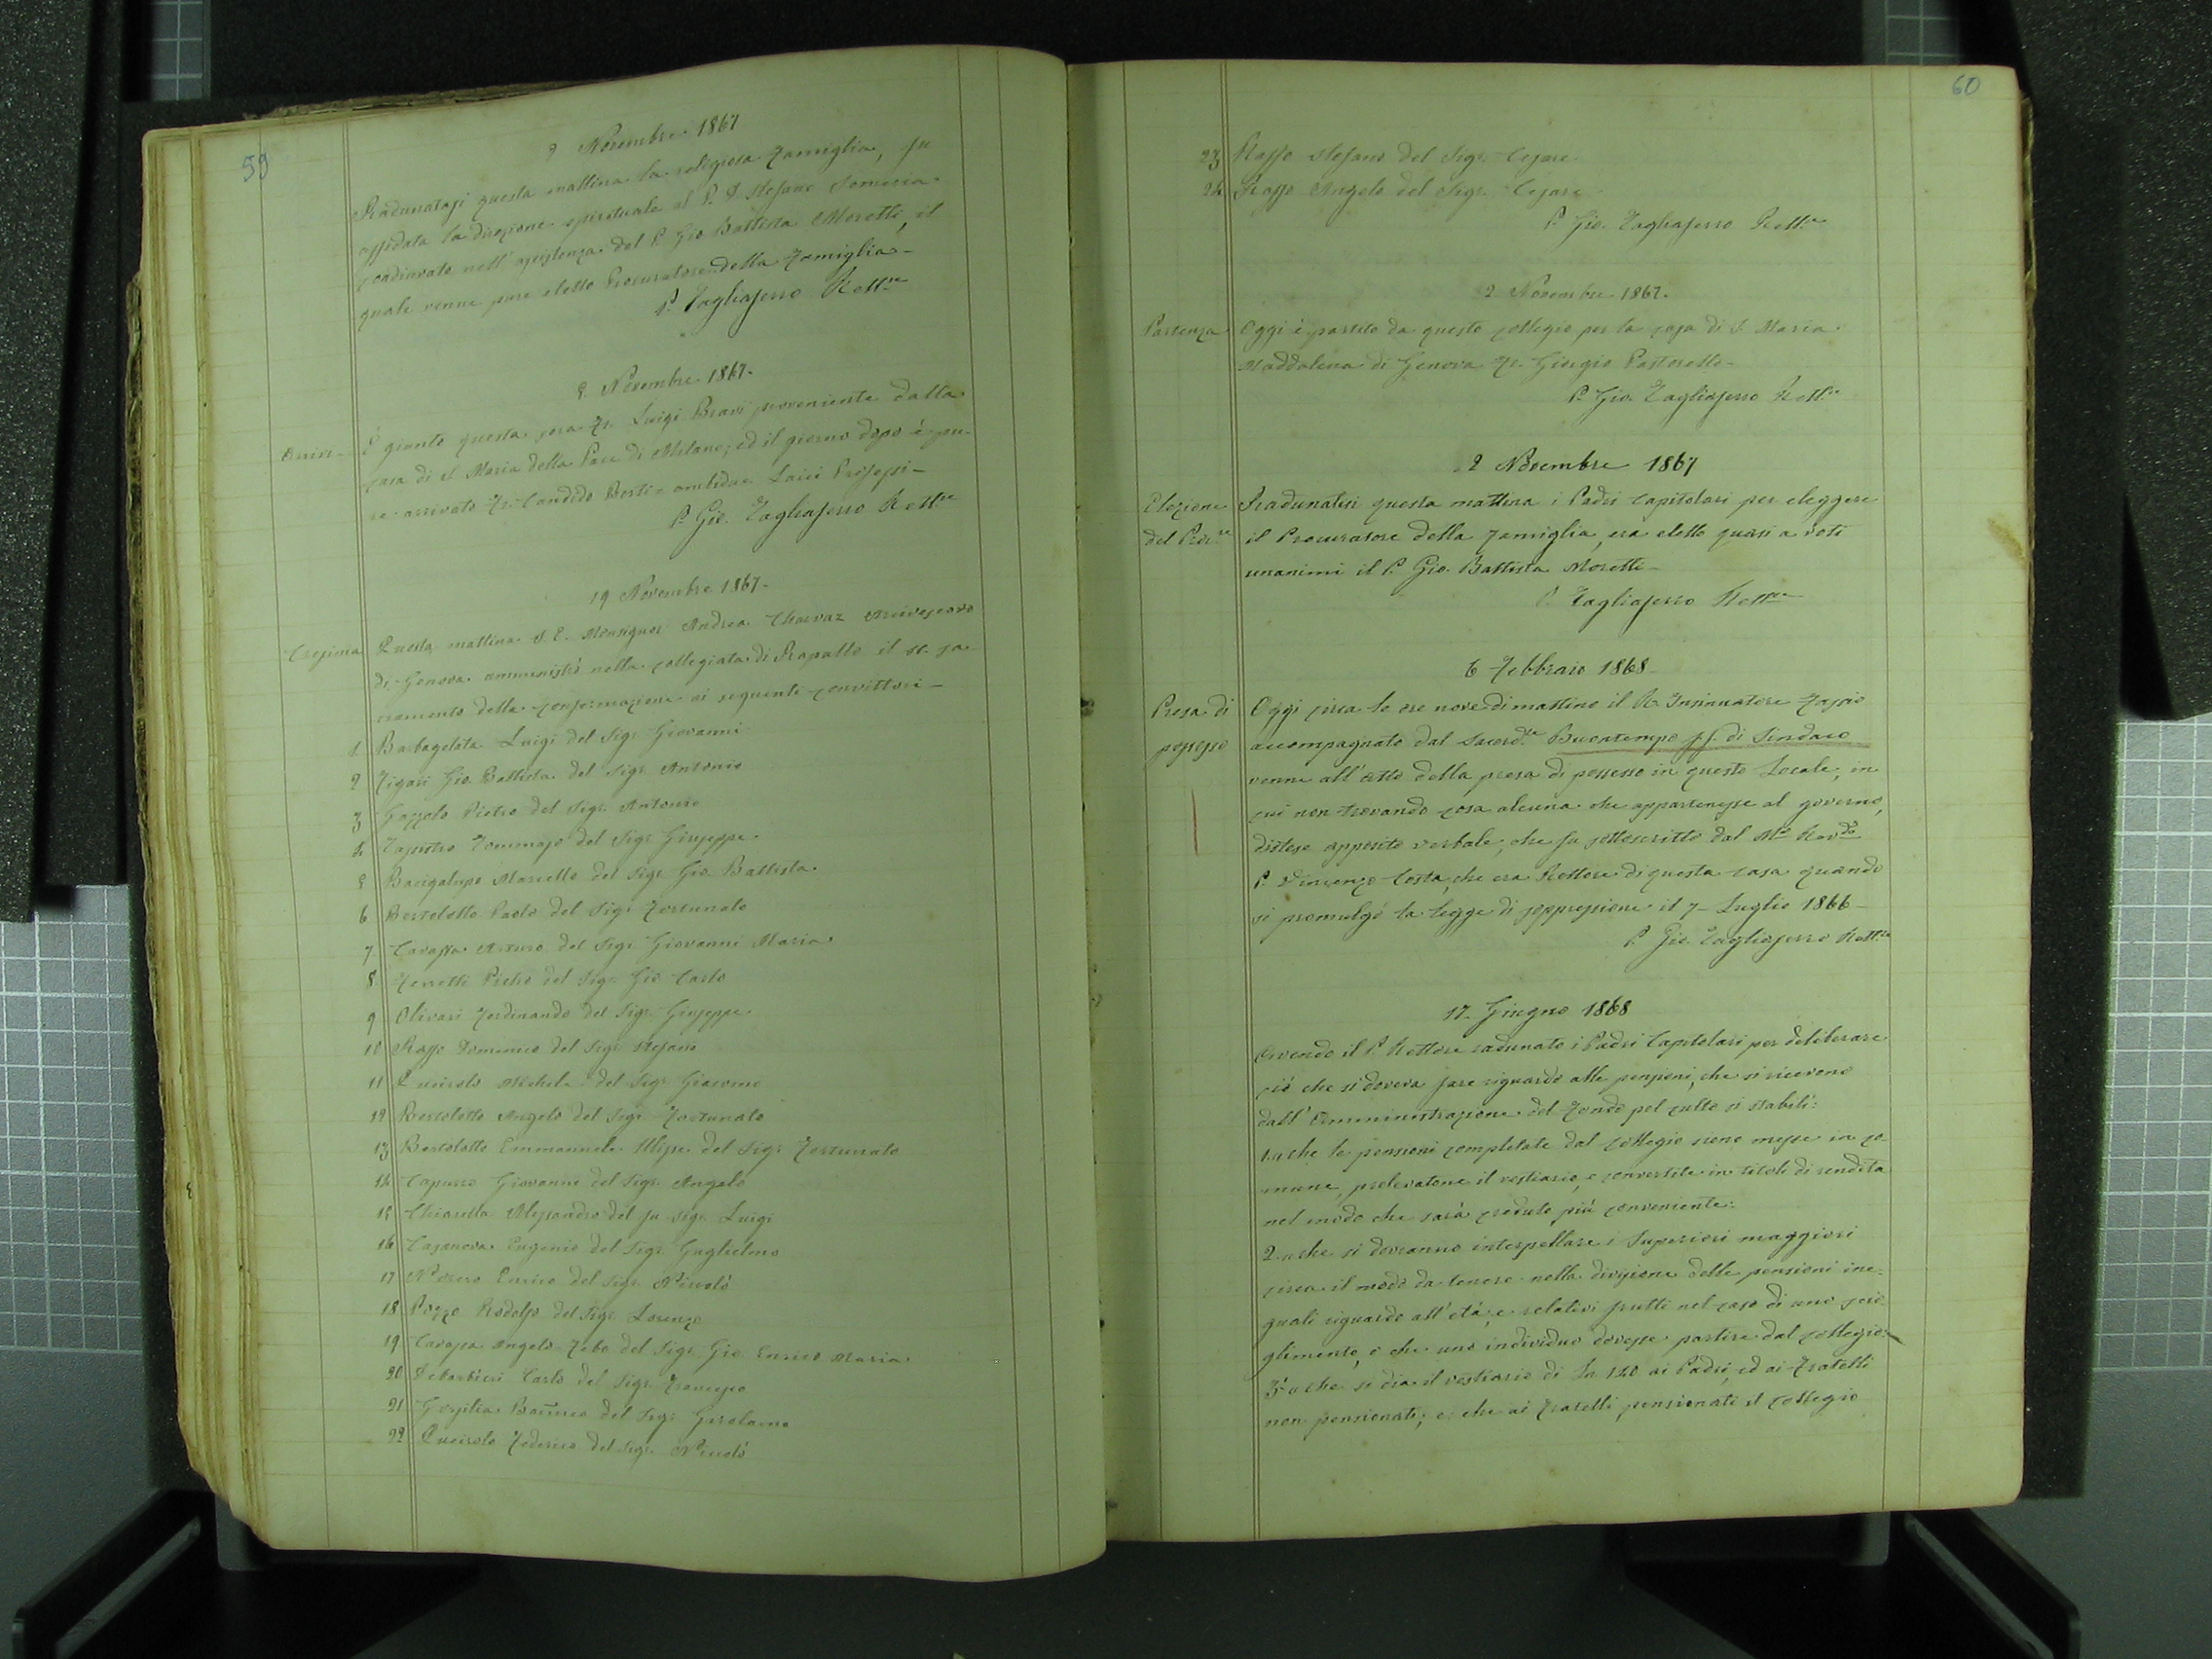 59
2 Novembre 1867
Radunatasi questa mattina la religiosa famiglia, fu
affidata la direzione spirituale al P. D. Stefano Semeria
coadiuvato nell'assistenza dal P. Gio Battista Moretti, il
quale venne pure eletto Procuratore della famiglia-
P. Tagliaferro Rett.re
2 Novembre 1867.
Arrivi-
È giunto questa sera Fr. Luigi Bravi proveniente dalla
casa di S. Maria della Pace di Milano; ed il giorno dopo è pu-
re arrivato Fr. Candido Berti = ambidue Laici Professi-
P. Gio. Tagliaferro Rett.re
19 Novembre 1867-
Cresima
Questa mattina S. E. Monsignor Andrea Charvaz Arcivescovo
di Genova amministrò nella collegiata di Rapallo il SS. sa-
cramento della confermazione ai seguenti convittori-
1 Barbagelata Luigi del Sigr. Giovanni
2 Figari Gio. Battista del Sigr. Antonio
3 Gazzolo Pietro del Sigr. Antonio
4 Tommaso del Sigr. Giuseppe
5 Bacigalupo Marcello del Sigr. Gio. Battista
6 Bertolotto Paolo del Sigr. Fortunato
7 Caraffa Arturo del Sigr. Giovanni Maria
8 Ferretti Pietro del Sigr. Gio Carlo
9 Olivari Ferdinando del Sigr. Giuseppe
10 Raffo Domenico del Sigr. Stefano
11 Queirolo Michele del Sigr. Giacomo
12 Bertolotto Angelo del Sigr. Fortunato
13 Bertolotto Emmanuele Ulisse del Sigr. Fortunato
14 Capurro Giovanni del Sigr. Angelo
15 Chiarella Alessandro del fu Sigr. Luigi
16 Casanova Eugenio del Sigr. Guglielmo
17 Enrico del Sigr. Nicolò
18 Pozzo Rodolfo del Sigr. Lorenzo
19 Angelo del Sigr. Gio. Enrico Maria
20 DeBarbieri Carlo del Sigr. Francesco
21 del Sigr. Gerolamo
22 Queirolo Federico del Sigr. Nicolò
60
23 Raffo Stefano del Sigr. Cesare
24 Raffo Angelo del Sigr. Cesare
P. Gio. Tagliaferro Rett.re
2 Novembre 1867.
Partenza
Oggi è partito da questo collegio per la casa di S. Maria
Maddalena di Genova Fr. Giorgio Pastorello-
P. Gio. Tagliaferro Rett.re
2 Novembre 1867
Elezione
del Proc.re
Radunatisi questa mattina i Padri capitolari per eleggere
il Procuratore della famiglia, era eletto quasi a voti
unanimi il P. Gio. Battista Moretti-
P. Tagliaferro Rett.re
6 Febbraio 1868-
Presa di
possesso
Oggi circa le ore nove di mattino il R. Insinuatore Fassio
accompagnato dal Sacerd.te Buontempo ff. di Sindaco
venne all'atto della presa di possesso in questo Locale, in
cui non trovando cosa alcuna che appartenesse al governo,
distese apposito verbale, che fu sottoscritto dal M.to Rev.do
P. Vincenzo Costa, che era Rettore di questa casa quando
si promulgò la legge di soppressione il 7 Luglio 1866-
P. Gio. Tagliaferro Rett.re
17 Giugno 1868
Avendo il P. Rettore radunato i Padri Capitolari per deliberare
ciò che si doveva fare riguardo alle pensioni, che si ricevono
dall'Amministrazione del Fondo pel culto si stabilì:
1.o che le pensioni completate dal collegio sieno messe in co-
mune, prelevatone il vestiario, e convertite in titoli di rendita
nel modo che sarà creduto più conveniente:
2.o che si dovranno interpellare i Superiori maggiori
circa il modo da tenere nella divisione delle pensioni ine-
guali riguardo all'età, e relativi frutti nel caso di uno scio-
glimento, o che uno individuo dovesse partire dal collegio:
3.o che si dia il vestiario di Ln 120 ai Padri, ed ai Fratelli
non pensionati; e che ai Fratelli pensionati il collegio